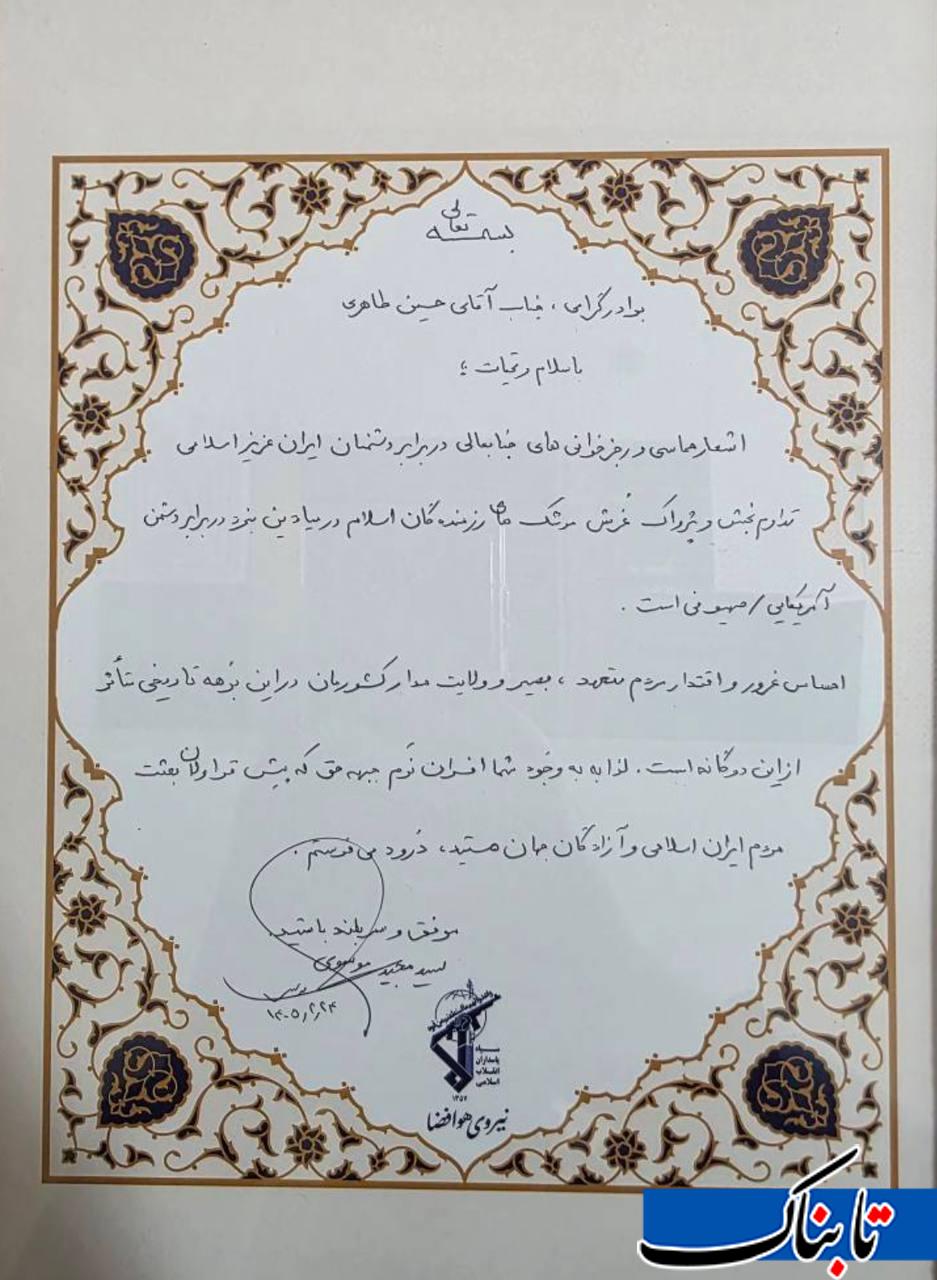 بسمه تعالی
برادر گرامی ، جناب آقای حسین طاهری
با سلام و تحیات ؛
اشعار حماسی و رجزخوانی های جنابعالی در برابر دشمنان ایران عزیز اسلامی
تداوم بخش و پژواک غُرش موشک های رزمنده گان اسلام در میادین نبرد در برابر دشمن
آمریکایی / صهیونی است .
احساس غرور و اقتدار مردم متعهد ، بصیر و ولایت مدار کشورمان در این بُرهه تاریخی متأثر
از این دوگانه است . لذا به به وجُود شما افسران نَرم جبهه حق که پیش قراولان بعثت
مردم ایران اسلامی و آزادگان جهان هستید ، دُرود می فرستم .
موفق و سربلند باشید
سید مجید موسوی
۱۴۰۵/۲/۲۴
سپاه
پاسداران
انقلاب
اسلامی
۱۳۵۷
نیروی هوافضا
تابناک